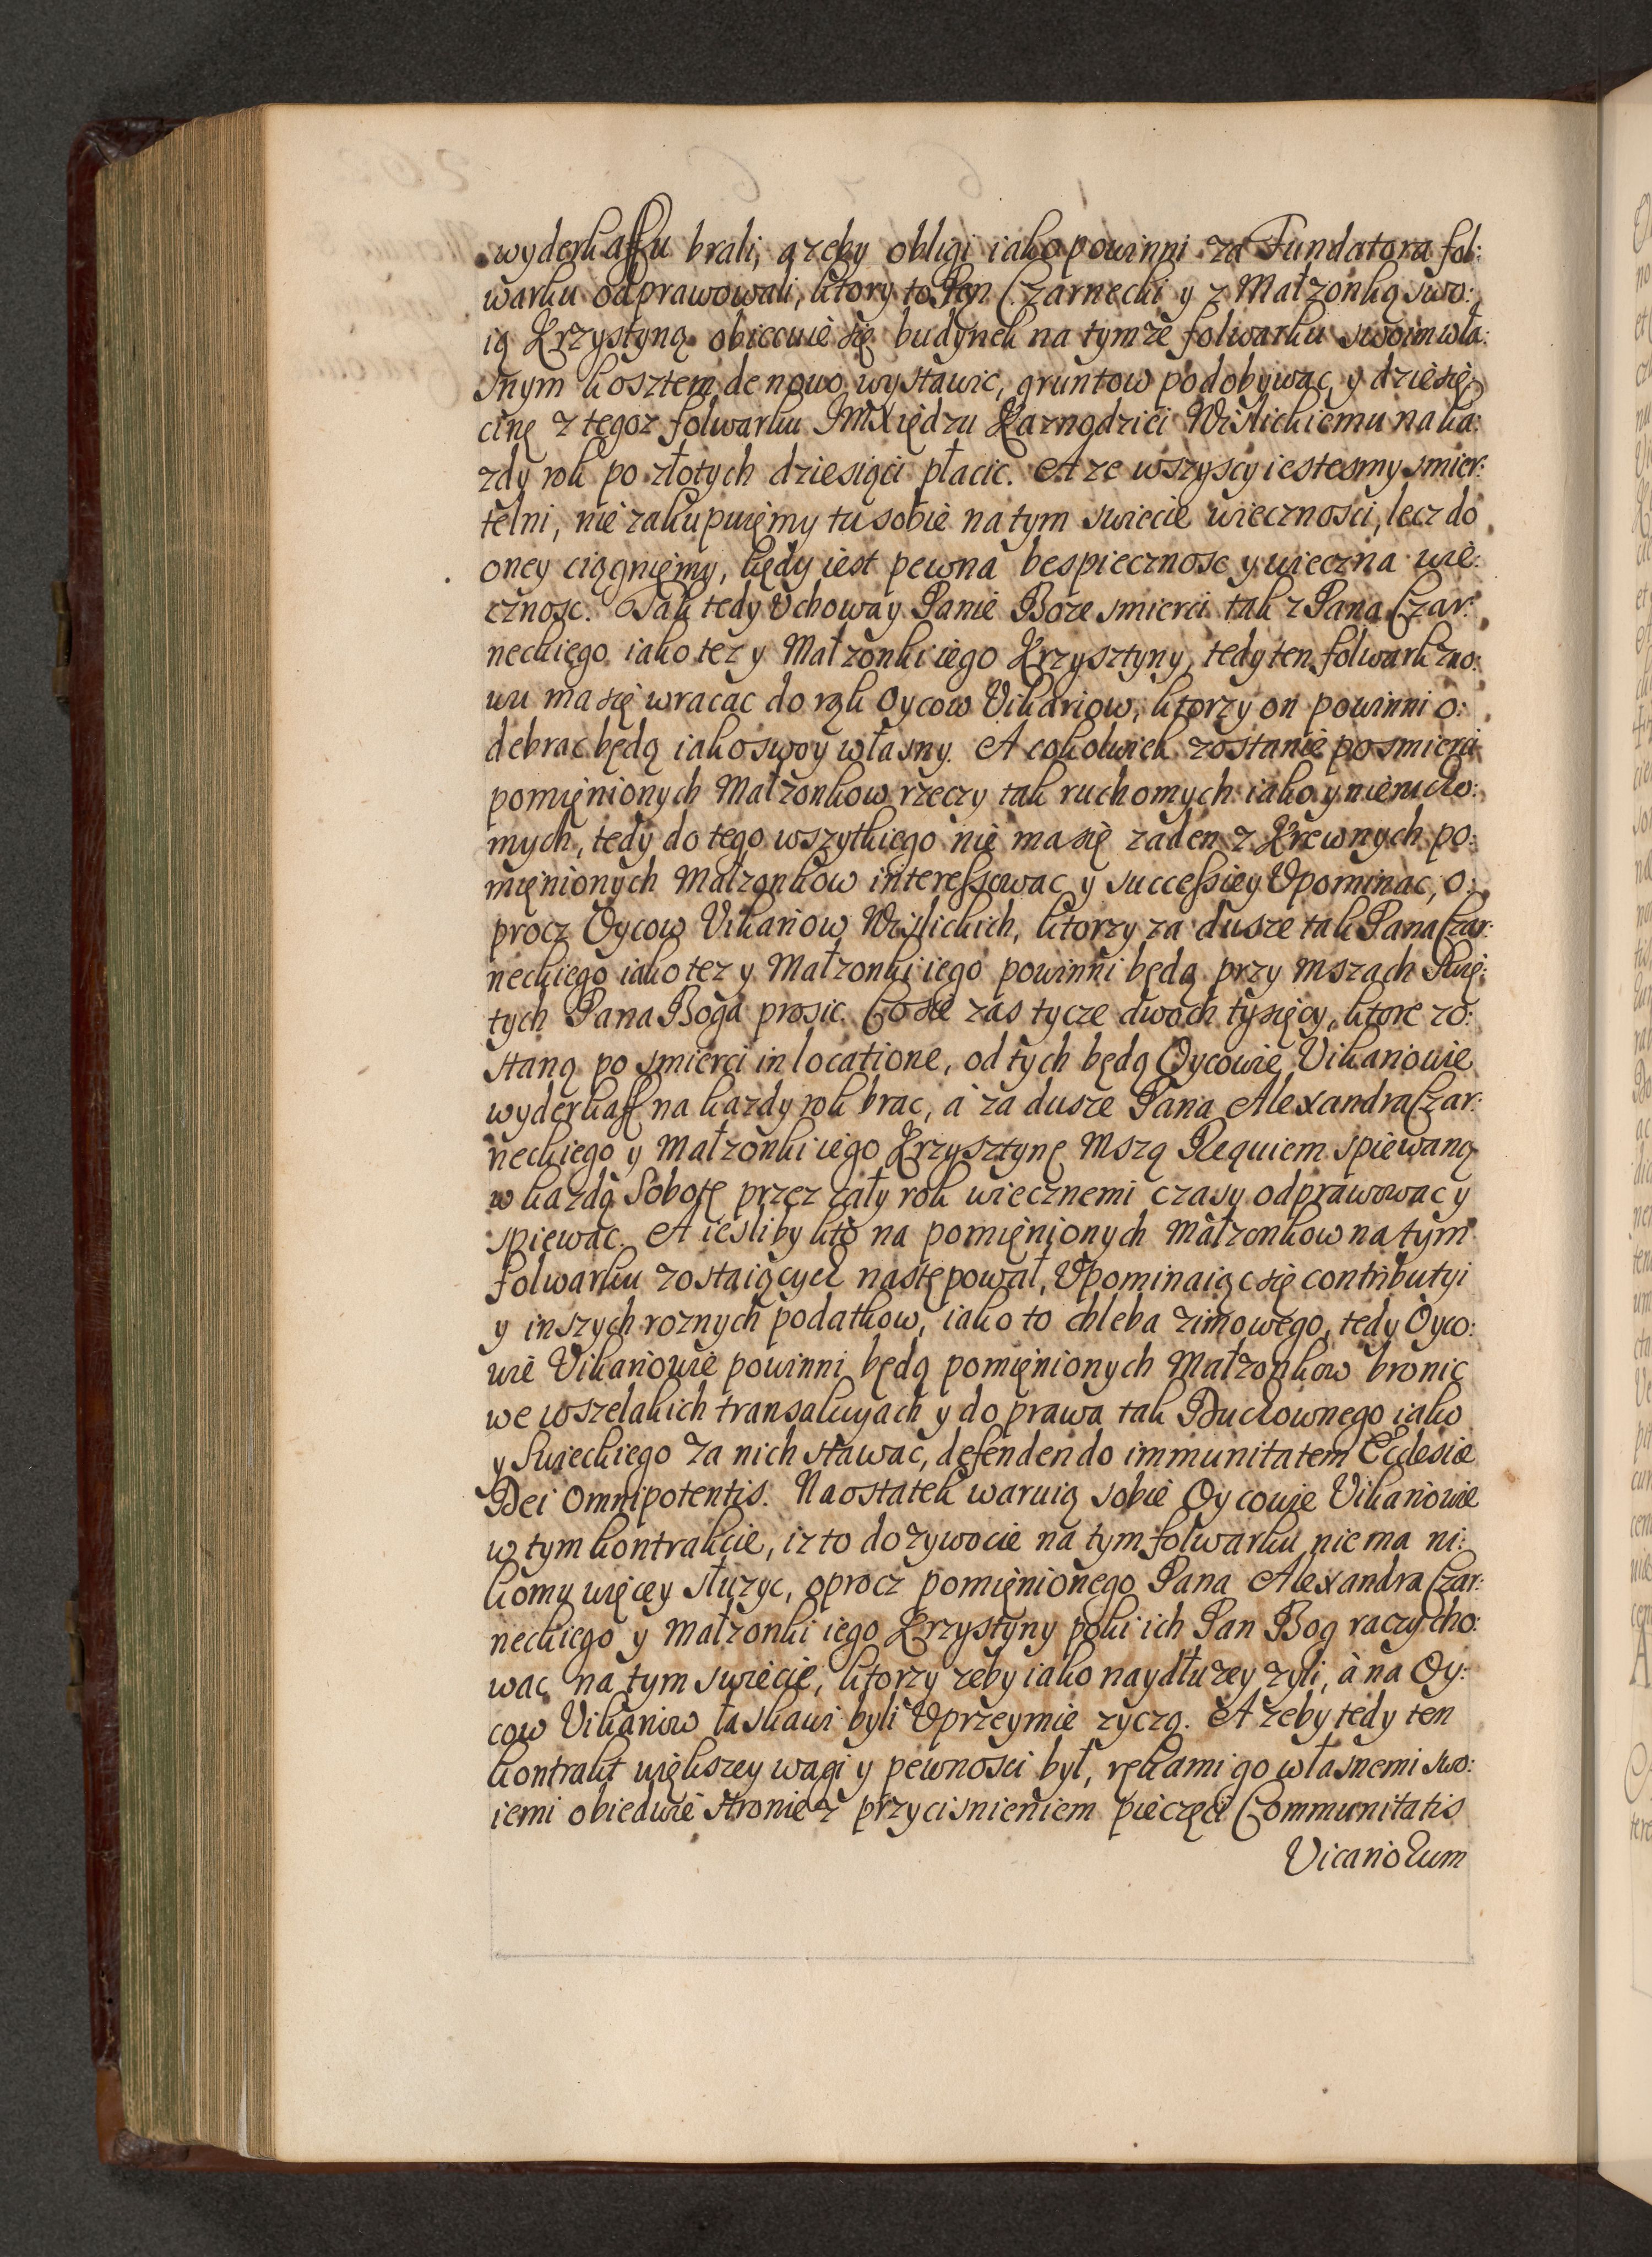 wyderkaffu brali, azeby obligi iako powinni za Fundatora fol:
warku odprawowali, ktory to Pan Czarnecki y z Małzonką swo:
ią Krzystyną obiecuie się budynek na tymze folwarku swoim wła:
snym kosztem de novo wystawic, gruntow podobywac, y dziesię:
cinę z tegoz folwarku JmXiędzu Kaznodziei Wislickiemu na ka:
zdy rok po złotych dziesiąci płacic. A ze wszyscy iestesmy smier:
telni, nie zakupuięmy tu sobie na tym swiecie wiecznosci, lecz do
oney ciągnięmy, kędy iest pewna bespiecznosc y wieczna wie:
cznosc. Tak tedy Uchoway Panie Boze smierci tak z Pana Czar:
neckiego iako tez y Małzonki iego Krzysztyny, tedy ten folwark zno:
wu ma się wracac do rąk Oycow Vikariow, ktorzy on powinni o:
debrac będą iako swoy własny. A cokolwiek zostanie po smierci
pomięnionych Małzonkow rzeczy tak ruchomych iako y nierucho:
mych, tedy do tego wszytkiego nie ma się zaden z Krewnych po:
mięnionych Małzonkow interessowac y successiey Upominac, o:
procz Oycow Vikariow Wislickich, ktorzy za dusze tak Pana Czar:
neckiego iako tez y Małzonki iego powinni będą przy mszach Swię:
tych Pana Boga prosic. Co się zas tycze dwoch tysięcy, ktore zo:
staną po smierci in locatione, od tych będą Oycowie Vikariowie
wyderkaff na kazdy rok brac, à za dusze Pana Alexandra Czar:
neckiego y Małzonki iego Krzysztynę Mszą Requiem spiewaną
w kazdą Sobotę przez cały rok wiecznemi czasy odprawowac y
spiewac. A iesliby kto na pomięnionych Małzonkow na tym
folwarku zostaiących następował, Upominaiąc się contributyi
y inszych roznych podatkow, iako to chleba zimowego, tedy Oyco:
wie Vikariowie powinni będą pomięnionych Małzonkow bronic
we wszelakich transakcyach y do prawa tak Duchownego iako
y Swieckiego za nich stawac, defendendo immunitatem Ecclesiæ
Dei Omnipotentis. Na ostatek waruią sobie Oycowie Vikariowie
w tym kontrakcie, iz to dozywocie na tym folwarku nie ma ni:
komu więcey słuzyc, oprocz pomięnionego Pana Alexandra Czar:
neckiego y Małzonki iego Krzystyny poki ich Pan Bog raczy cho:
wac na tym swiecie, ktorzy zeby iako naydłuzey zyli, à na Oy:
cow Vikariow łaskawi byli Uprzeymie zyczą. A zeby tedy ten
kontrakt większey wagi y pewnosci był, rękami go własnemi swo:
iemi obiedwie stronie z przycisnieniem pieczęci Communitatis
Vicariorum